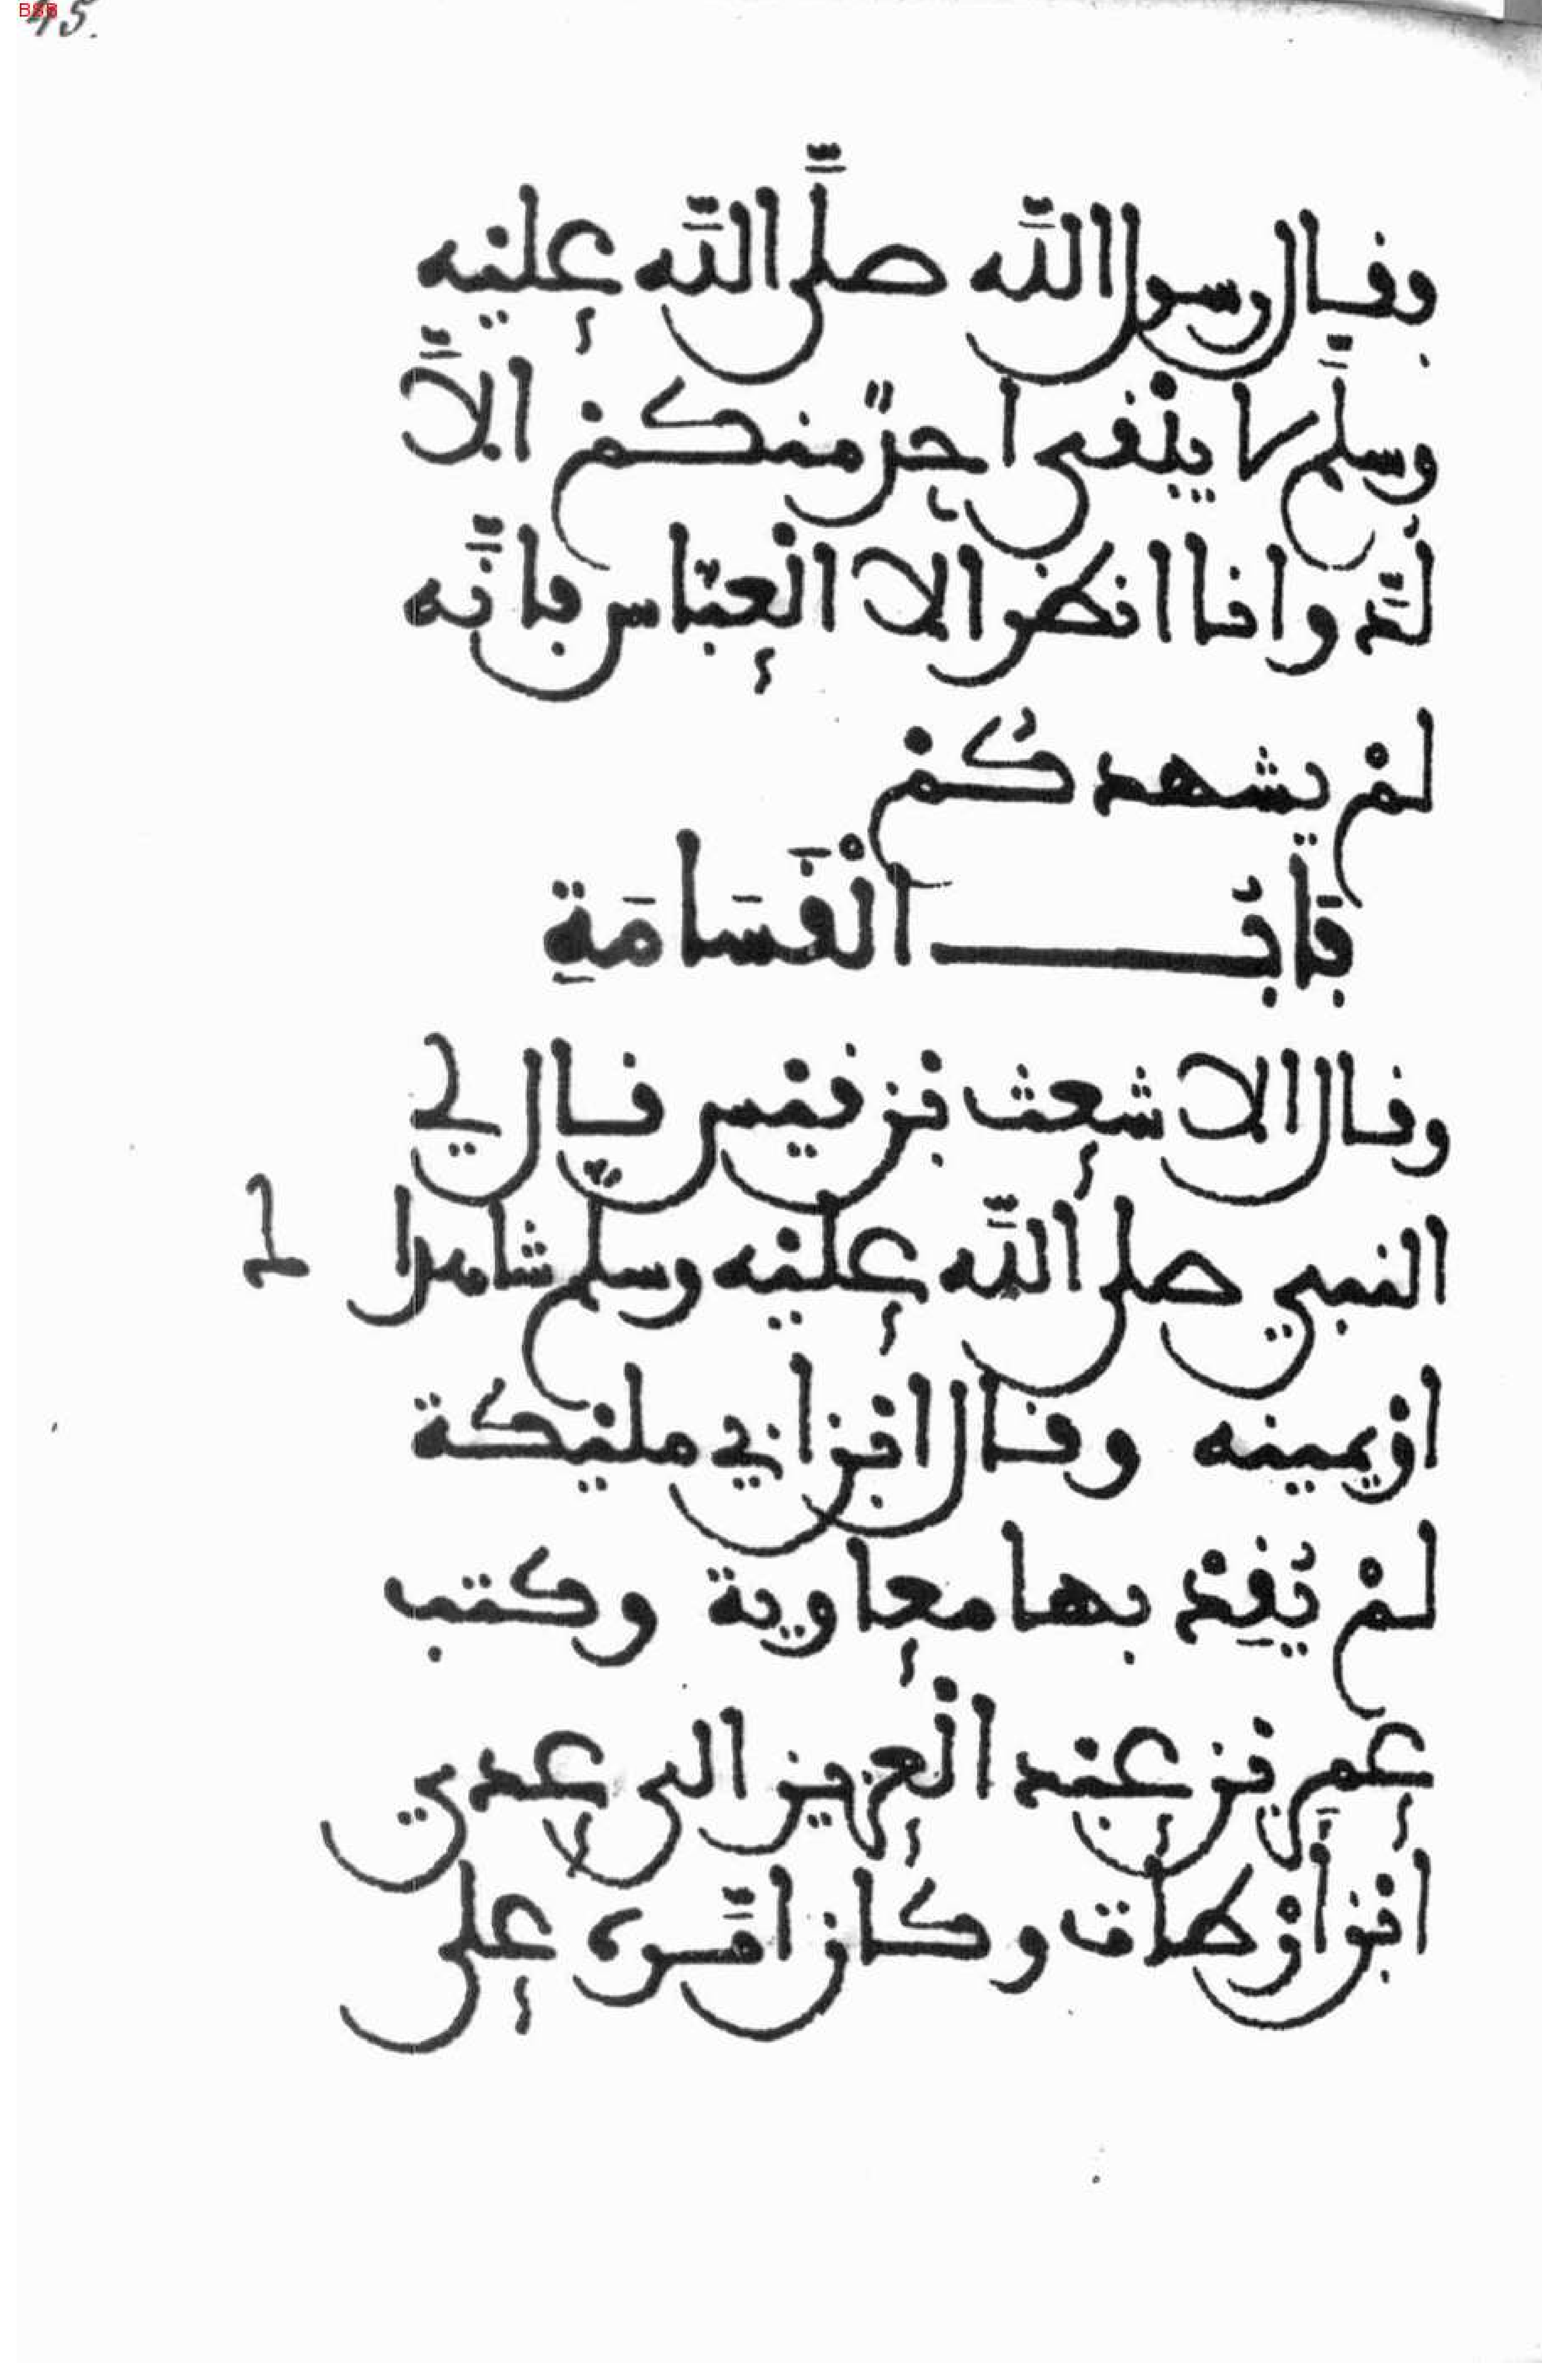 BSB
45.
وقال رسول اللّه صلَّى اللّه عليْه
وسلَّم لا يبْقى احدٌ منكمْ الاَّ
لُدَّ وانا انظر الا الْعبّاس فانَّه
لمْ يشهدكُمْ
بَابُ الْقَسَامَةِ
وقال الاشعث بْن قيْس قال لي
النبي صلى اللَّه عليْه وسلّم شاهدا
اوْ يمينه وقال ابْن ابي مليْكة
لمْ يُقِدْ بها معاوية وكتب
عمر بْن عبْد الْعزيز الى عدي
ابْن أرْطاة وكان امَّره على